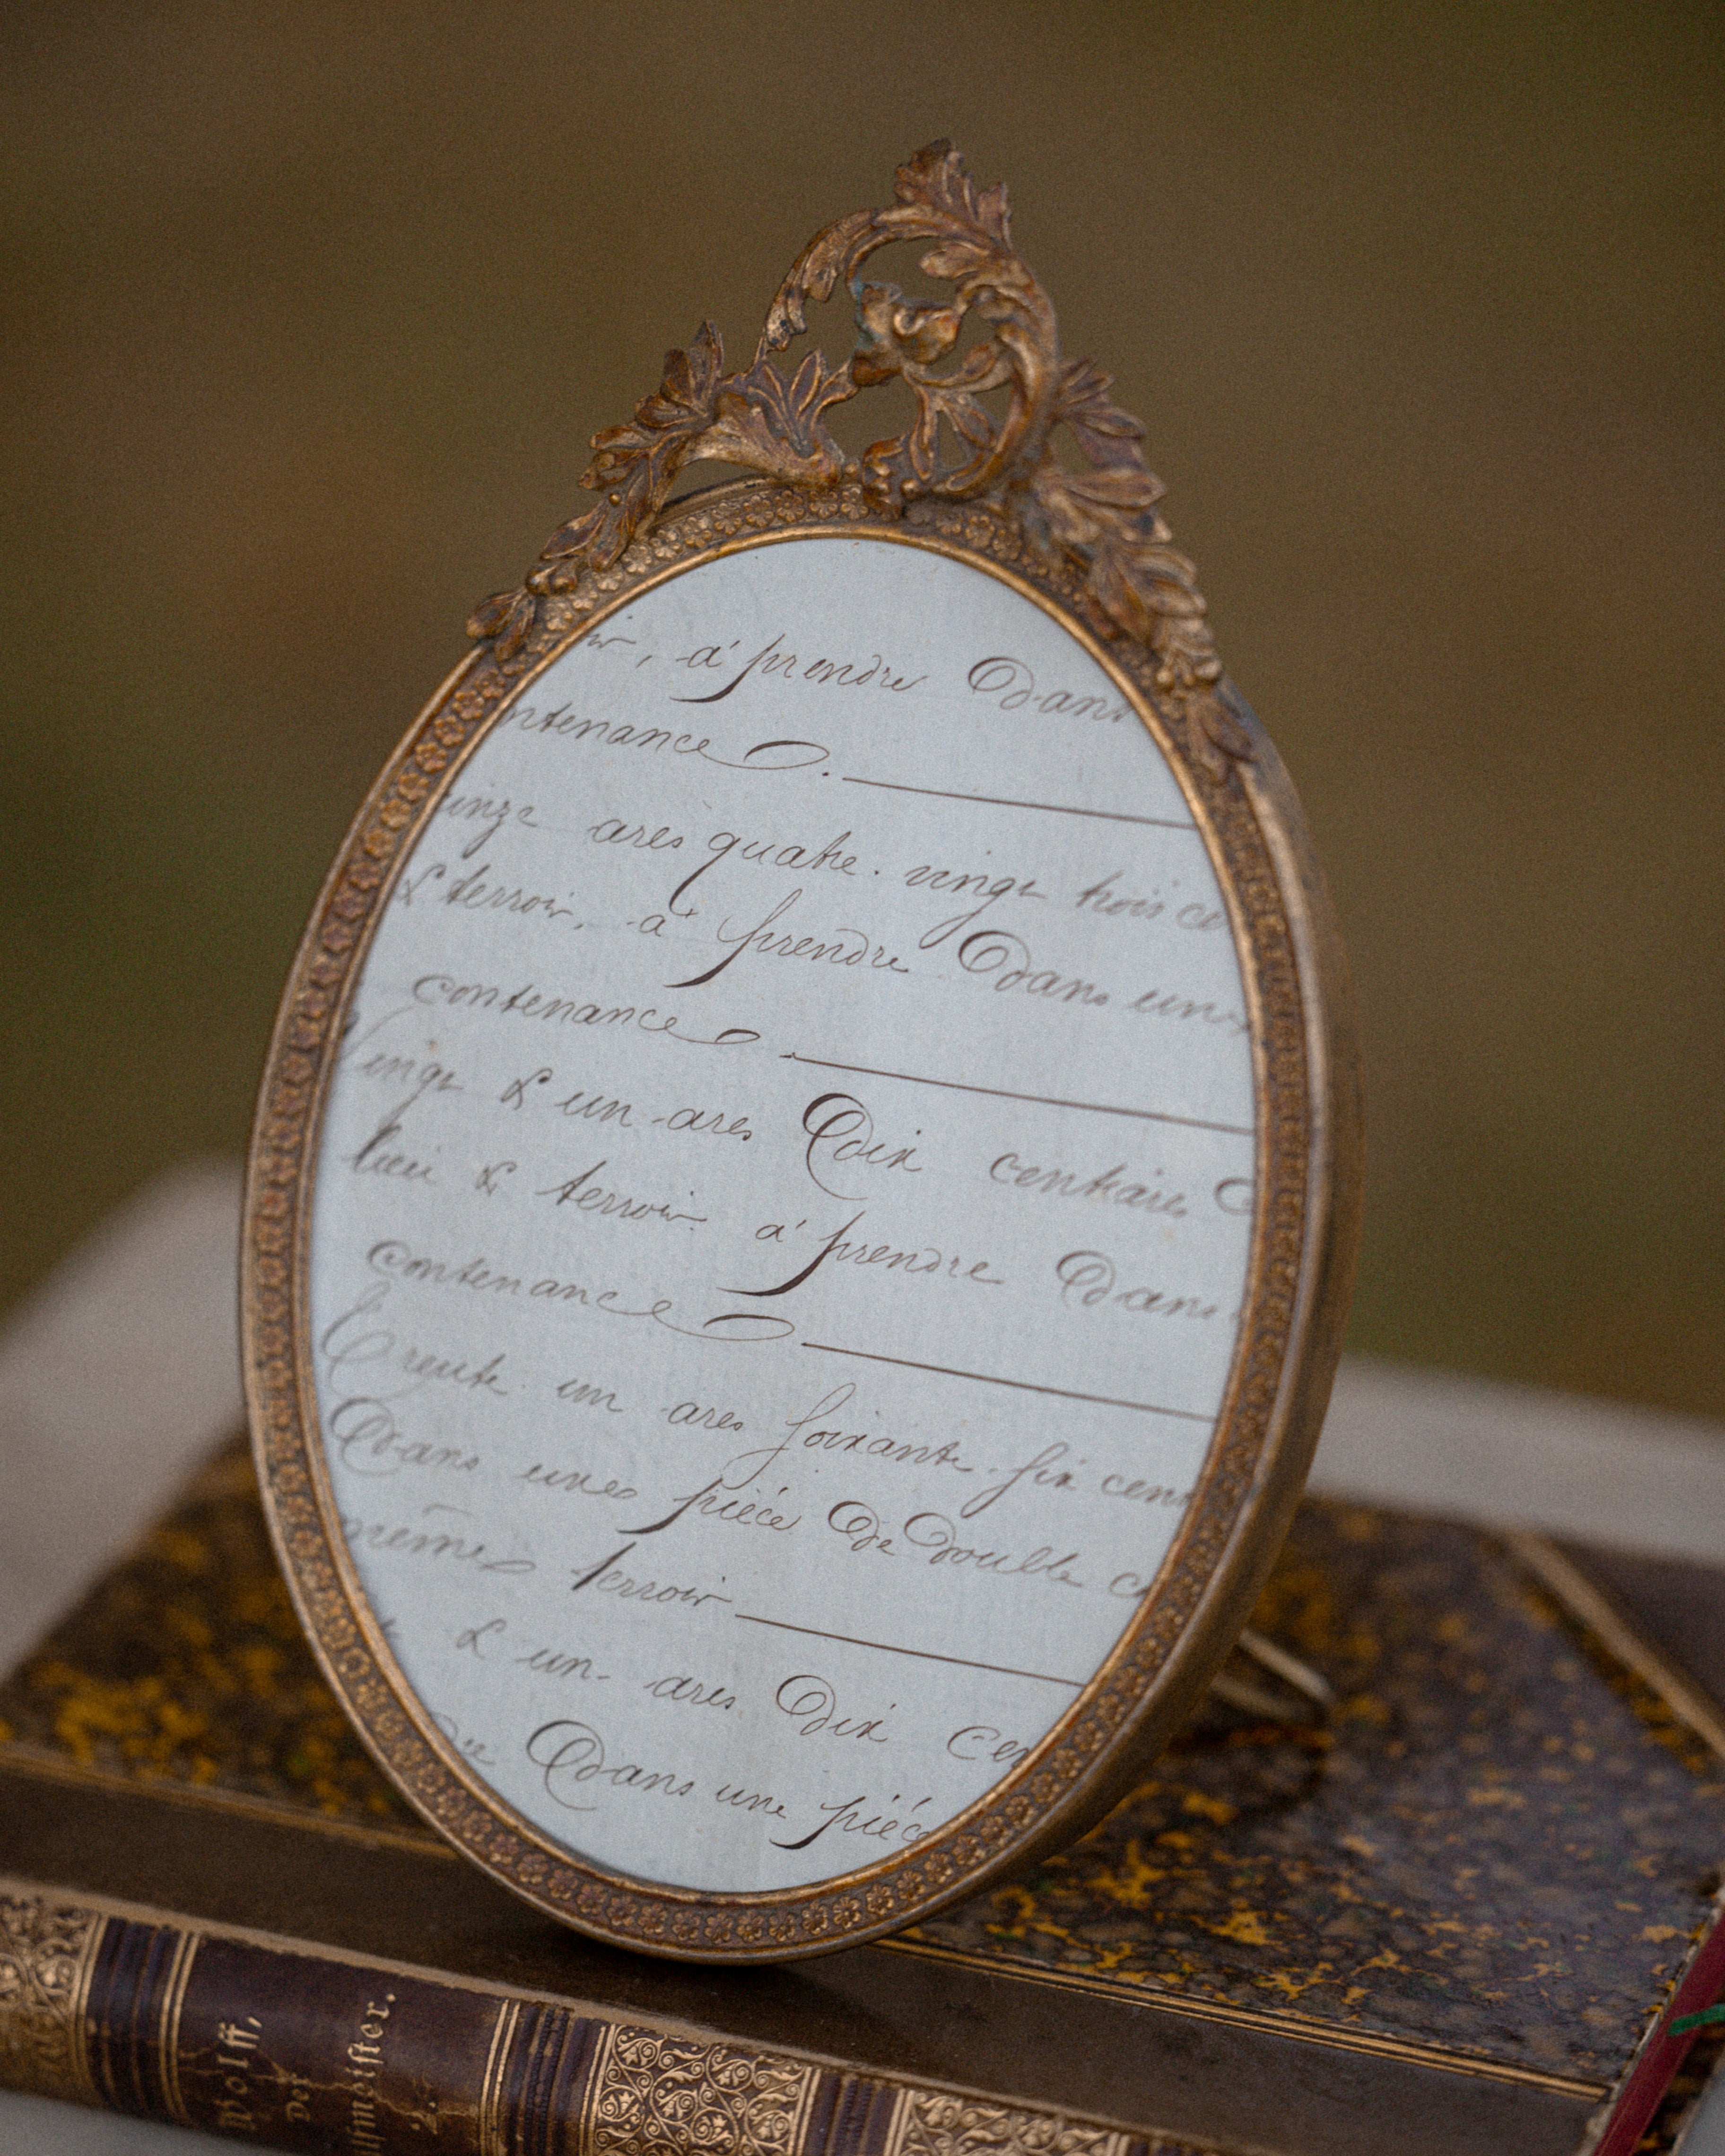 , à prendre dans
ntenance.
ares quatre-vingt trois ce
& terroir, à prendre dans un
contenance.
Vingt & un ares dix centiares
lieu & terroir à prendre dans
contenance
Trente un ares soixante-six cent
Dans une piéce de double c
même terroir
& un ares dix cen
dans une piéce
Wolff,
Der
2.